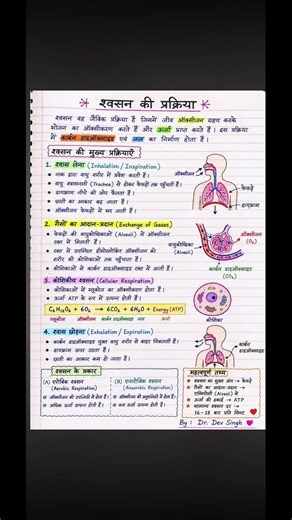 श्वसन की प्रक्रिया
श्वसन वह जैविक प्रक्रिया है जिसमें जीव ऑक्सीजन ग्रहण करके
भोजन का ऑक्सीकरण करते हैं और ऊर्जा प्राप्त करते हैं। इस प्रक्रिया
में कार्बन डाइऑक्साइड एवं जल का निर्माण होता है।
श्वसन की मुख्य प्रक्रियाएँ
1. श्वास लेना (Inhalation / Inspiration)
नाक द्वारा वायु शरीर में प्रवेश करती है।
वायु श्वासनली (Trachea) से होकर फेफड़ों तक पहुँचती है।
डायफ्राम नीचे की ओर फैलता है।
छाती का आकार बढ़ जाता है।
ऑक्सीजन फेफड़ों में भर जाती है।
ऑक्सीजन
फेफड़े
डायफ्राम
2. गैसों का आदान-प्रदान (Exchange of Gases)
फेफड़ों की वायुकोष्ठिकाओं (Alveoli) में ऑक्सीजन
रक्त में मिलती है।
रक्त में उपस्थित हीमोग्लोबिन ऑक्सीजन को
शरीर की कोशिकाओं तक पहुँचाता है।
कोशिकाओं से कार्बन डाइऑक्साइड रक्त में आती है।
वायुकोष्ठिका
(Alveoli)
ऑक्सीजन
(O₂)
कार्बन डाइऑक्साइड
(CO₂)
3. कोशिकीय श्वसन (Cellular Respiration)
कोशिकाओं में ग्लूकोज का ऑक्सीकरण होता है।
ऊर्जा ATP के रूप में उत्पन्न होती है।
C₆H₁₂O₆ + 6O₂ → 6CO₂ + 6H₂O + Energy (ATP)
ग्लूकोज ऑक्सीजन कार्बन डाइऑक्साइड जल ऊर्जा
कोशिका
4. श्वास छोड़ना (Exhalation / Expiration)
कार्बन डाइऑक्साइड युक्त वायु शरीर से बाहर निकलती है।
डायफ्राम ऊपर जाता है।
छाती का आकार कम हो जाता है।
कार्बन
डाइऑक्साइड
श्वसन के प्रकार
(A) एरोबिक श्वसन
(Aerobic Respiration)
ऑक्सीजन की उपस्थिति में होता है।
अधिक ऊर्जा उत्पन्न होती है।
(B) एनारोबिक श्वसन
(Anaerobic Respiration)
ऑक्सीजन की अनुपस्थिति में होता है।
कम ऊर्जा उत्पन्न होती है।
महत्वपूर्ण तथ्य
श्वसन का मुख्य अंग → फेफड़े
गैसों का आदान-प्रदान →
(Alveoli) में
ऊर्जा की इकाई → ATP
सामान्य श्वसन दर →
16-18 बार प्रति मिनट
By : Dr. Dev Singh